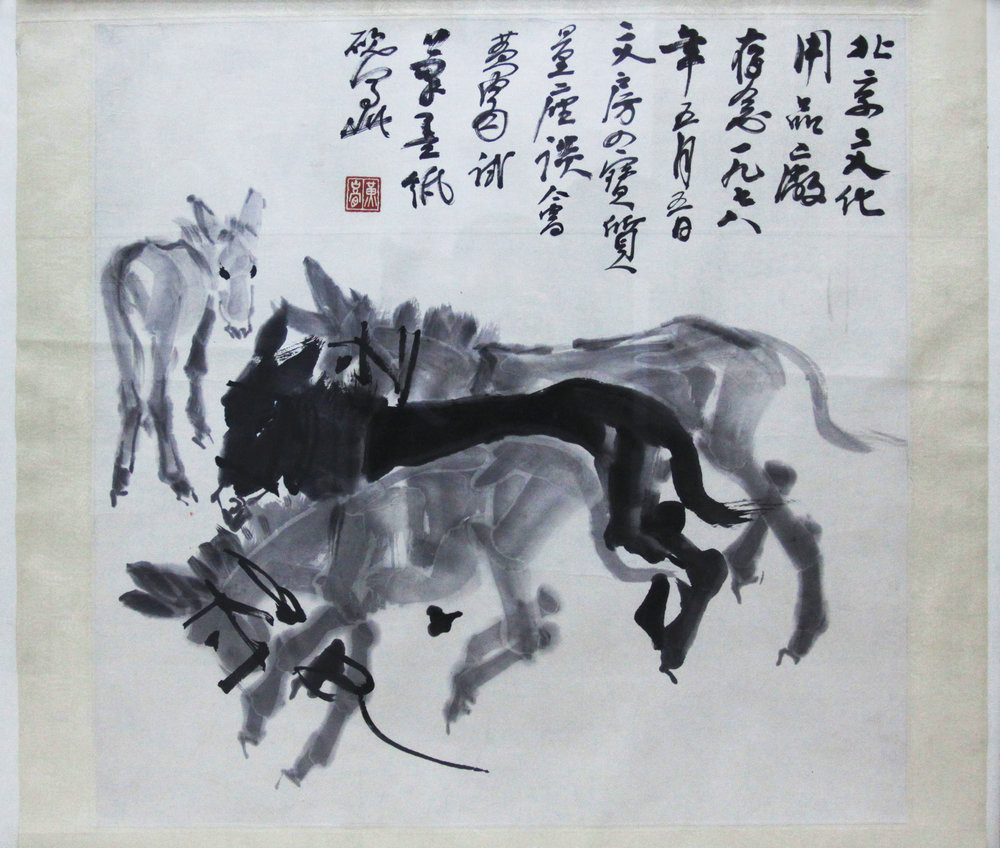 北京文化
用品廠
存念一九七八
年五月五日
文房四寶質
量座談會
黃胄試
筆墨紙
硯寫此
黃胄